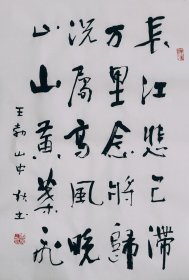 長江悲已滞
万里念將歸
况属高風晚
山山黄葉飛
王勃 山中